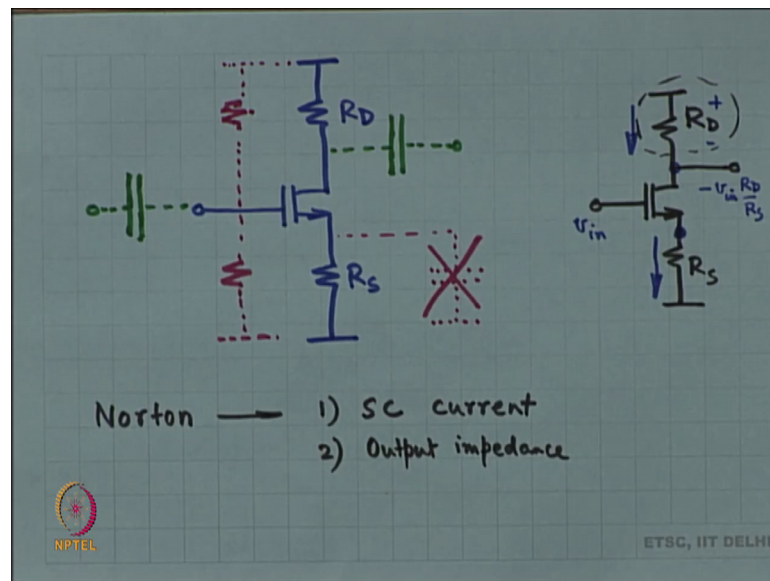 R_D
R_D
+
-
-v_in R_D/R_S
v_in
R_S
R_S
Norton — 1) SC current
2) Output impedance
NPTEL
ETSC, IIT DELHI